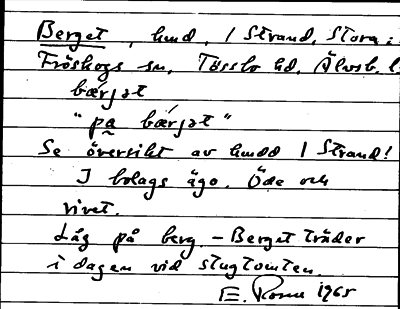 Berget, hmd, 1 Strand, Stora :
Fröskogs sn, Tössbo hd, Älvsb. l.
bærjət
"pa bærjət"
Se översikt av hmdd 1 Strand!
I bolags ägo. Öde och
rivet.
Låg på berg. – Berget träder
i dagen vid stugtomten.
E. 1965